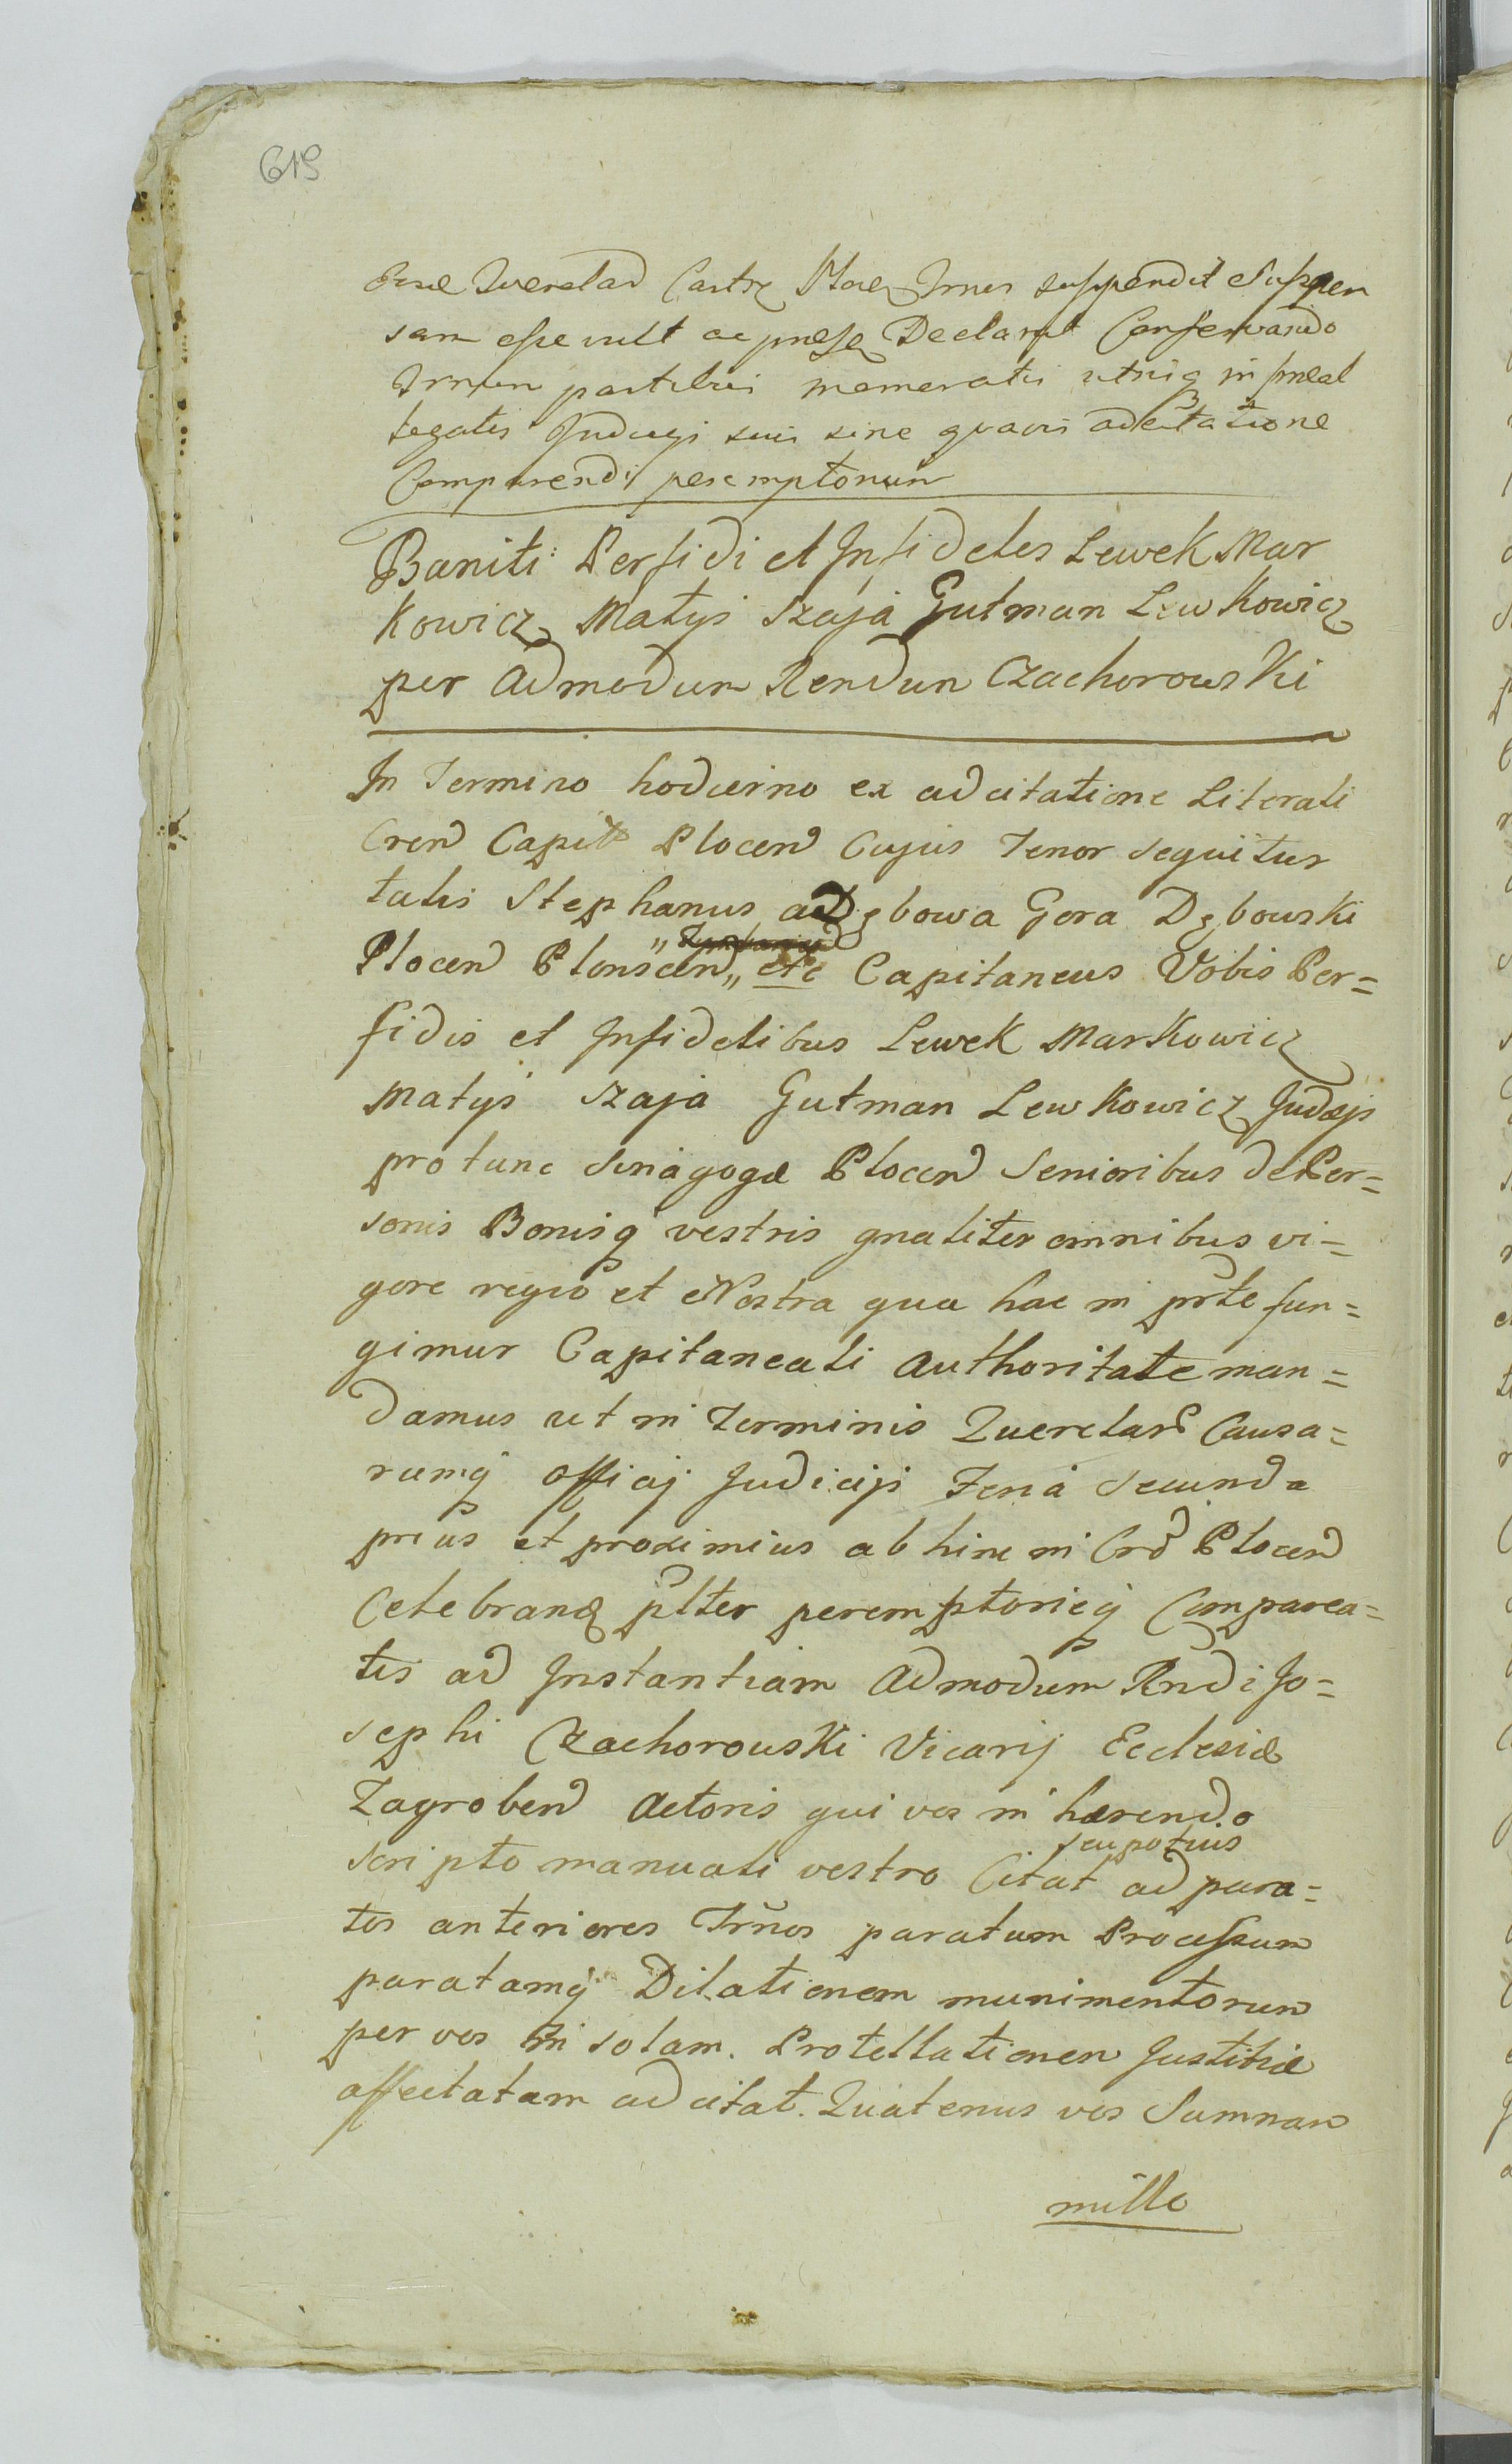 619
suspendit Suspen
sam esse vult ac Declarat Conservando
partibus memoratis
legatis Judicij sui sine quavis adcitatione
Comparendi peremptorium
Baniti Perfidi et Infideles Lewek Mar
kowicz Matys Szaja Gutman Lewkowicz
per Admodum Rendum Czachorowski
In Termino hodierno ex adcitatione Literali
Cren Capit Plocen Cujus Tenor sequitur
talis Stephanus a Dębowa Gora Dębowski
Plocen Plonscen etc Capitaneus Vobis Per=
fidis et Infidelibus Lewek Markowicz
Matys Szaja Gutman Lewkowicz Judæjs
pro tunc Sinagogæ Plocen Senioribus de Per=
sonis Bonisq vestris gnaliter omnibus vi=
gore regio et Nostra qua hac in prte fun=
gimur Capitaneali Authoritate man=
damus ut in Terminis Querelard Causa=
rumq officij Judicijs Feria Secunda
prius et proximius ab hinc in Crd Plocen
Celebrand plter peremptorieq Comparea=
tis ad Instantiam Admodum Rndi Jo=
sephi Czachorowski Vicarij Ecclesiæ
Zagroben Actoris qui vos inhærendo
scripto manuali vestro Citat seu potius ad para=
tos anteriores Trnos paratum Processum
paratamq Dilationem munimentorum
per vos in solam. Protellationem Justitiæ
affectatam adcitat. Quatenus vos Sumnam
mille